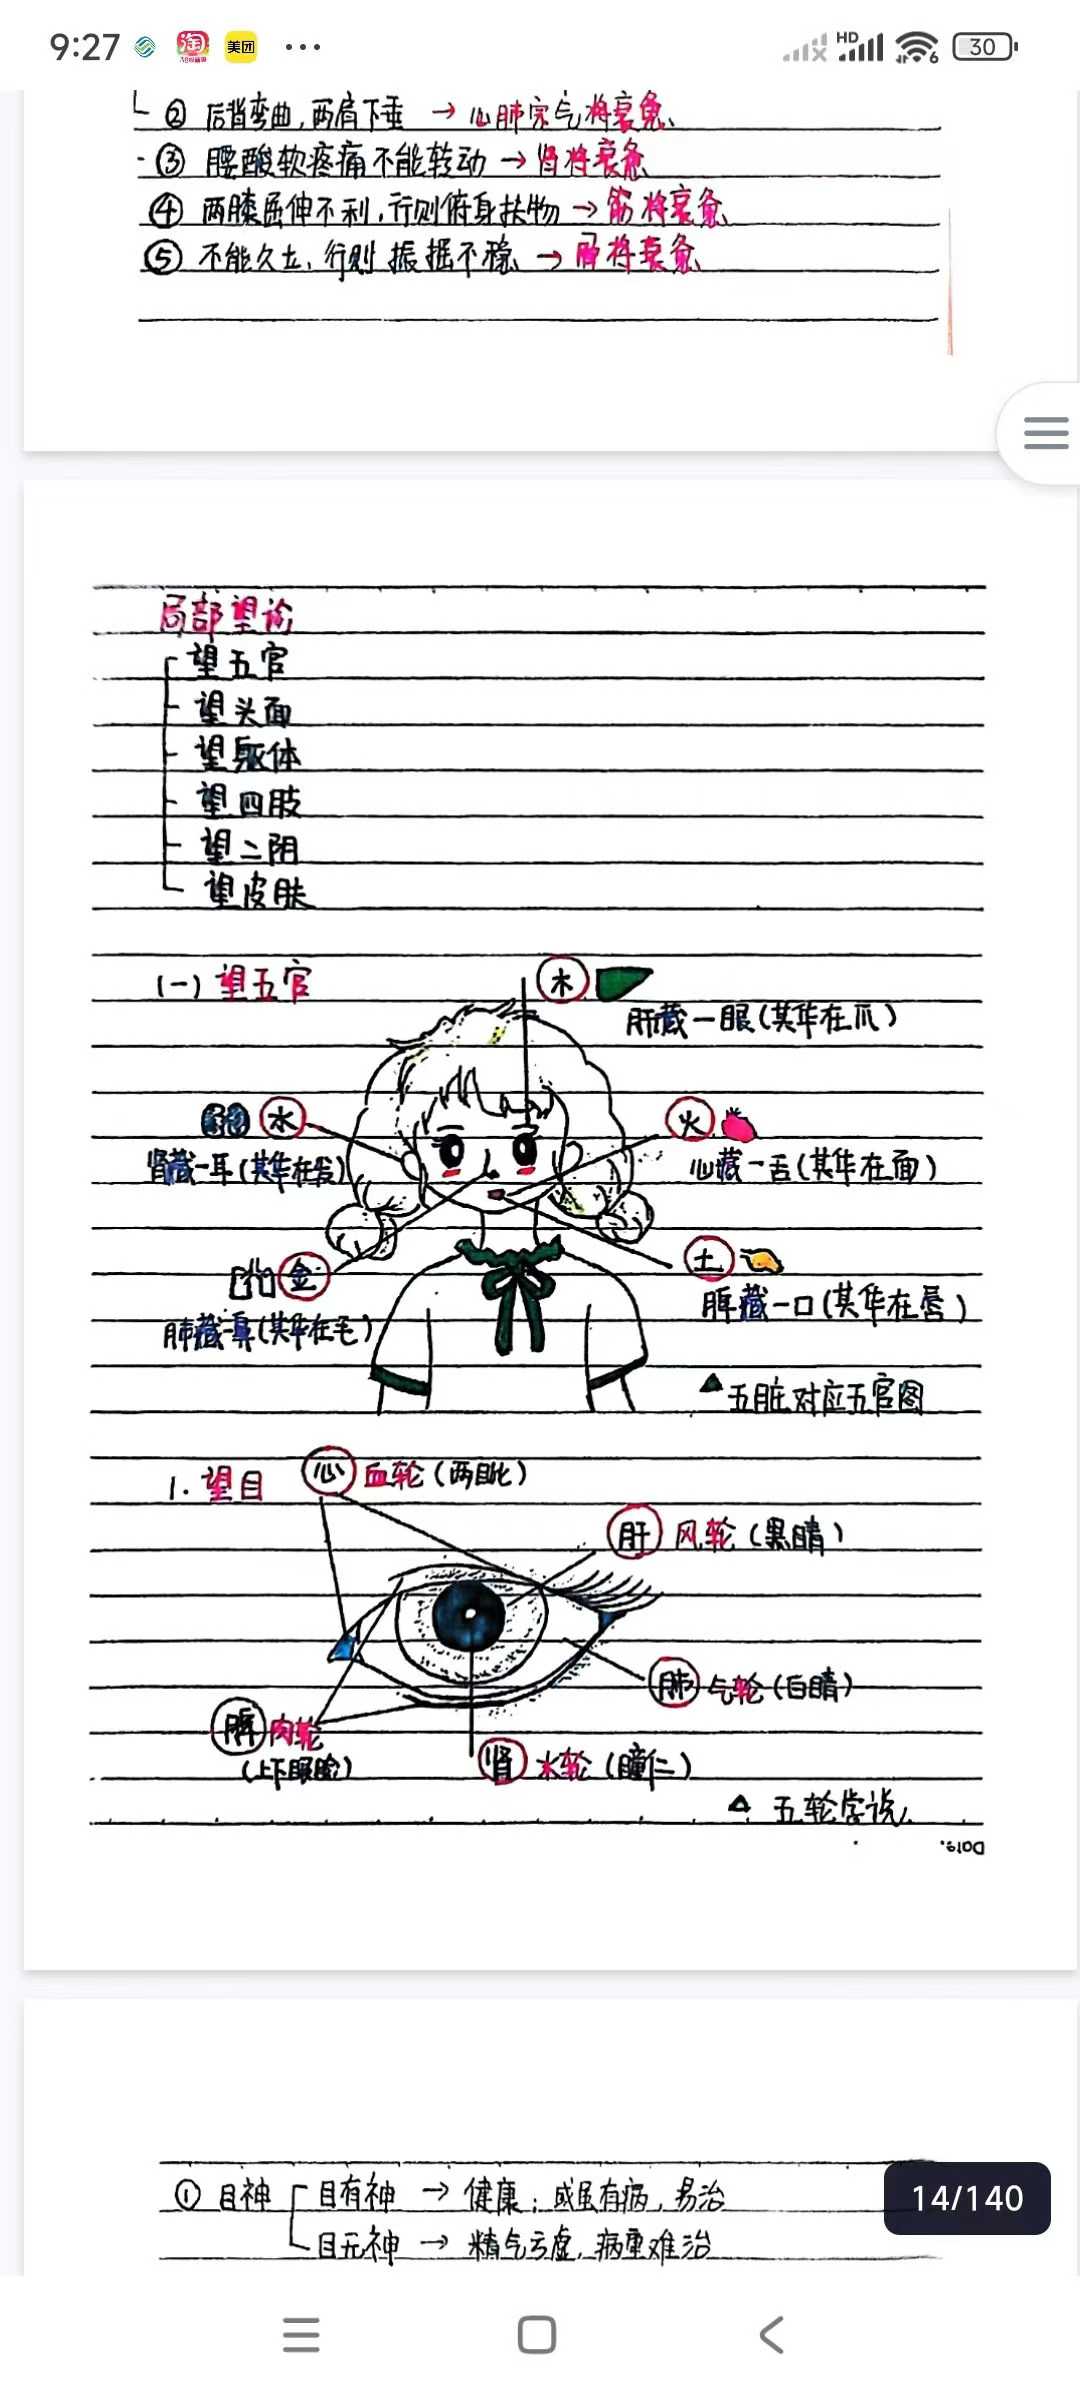 9:27
淘
美团
HD
6
30
② 后背弯曲,两肩下垂 → 心肺宗气将衰惫、
③ 腰酸软疼痛不能转动 → 肾将衰惫
④ 两膝屈伸不利,行则俯身扶物 → 筋将衰惫
⑤ 不能久立,行则振摇不稳 → 将衰惫
局部望诊
望五官
望头面
望躯体
望四肢
望二阴
望皮肤
(一) 望五官
木
肝藏一眼(其华在爪)
水
火
肾藏一耳(其华在发)
心藏一舌(其华在面)
金
土
肺藏一鼻(其华在毛)
脾藏一口(其华在唇)
▲五脏对应五官图
1. 望目
心 血轮(两眦)
肝 风轮(黑睛)
肺 气轮(白睛)
脾 肉轮
(上下眼睑)
肾 水轮(瞳仁)
△ 五轮学说
Date.
① 目神
目有神 → 健康;或虽有病,易治
目无神 → 精气亏虚,病重难治
14/140